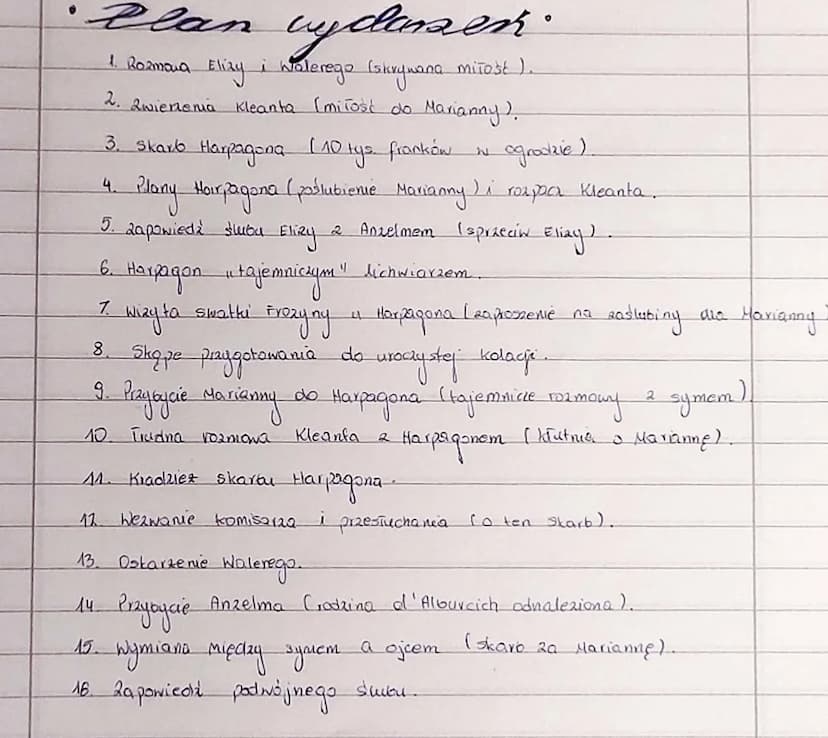 • Plan wydarzeń •
1. Rozmowa Elizy i Walerego (skrywana miłość).
2. Zwierzenia Kleanta (miłość do Marianny).
3. Skarb Harpagona (10 tys. franków w ogrodzie).
4. Plany Harpagona (poślubienie Marianny) i rozpacz Kleanta.
5. Zapowiedź ślubu Elizy z Anzelmem (sprzeciw Elizy).
6. Harpagon „tajemniczym" lichwiarzem.
7. Wizyta swatki Frozyny u Harpagona (zaproszenie na zaślubiny dla Marianny)
8. Skąpe przygotowania do uroczystej kolacji.
9. Przybycie Marianny do Harpagona (tajemnicze rozmowy z synem).
10. Trudna rozmowa Kleanta z Harpagonem (kłutnia o Mariannę).
11. Kradzież skarbu Harpagona.
12. Wezwanie komisarza i przesłuchania (o ten skarb).
13. Oskarżenie Walerego.
14. Przybycie Anzelma (rodzina d'Alburcich odnaleziona).
15. Wymiana między synem a ojcem (skarb za Mariannę).
16. Zapowiedź podwójnego ślubu.